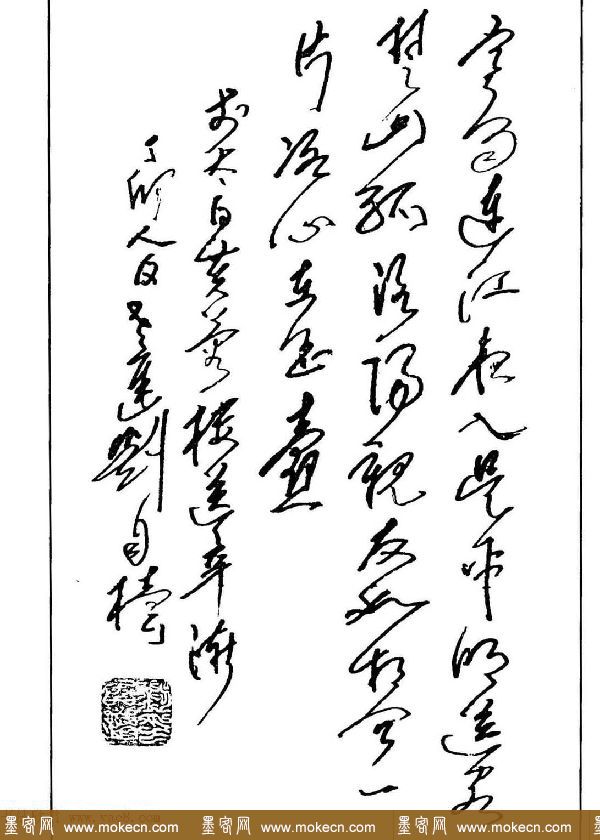 寒雨連江夜入吳平明送客
楚山孤洛陽親友如相問一
片冰心在玉壺
太白芙蓉樓送辛漸
丁卯人日劉自櫝
墨客网 www.mokecn.com 墨客网 www.mokecn.com 墨客网 www.mokecn.com